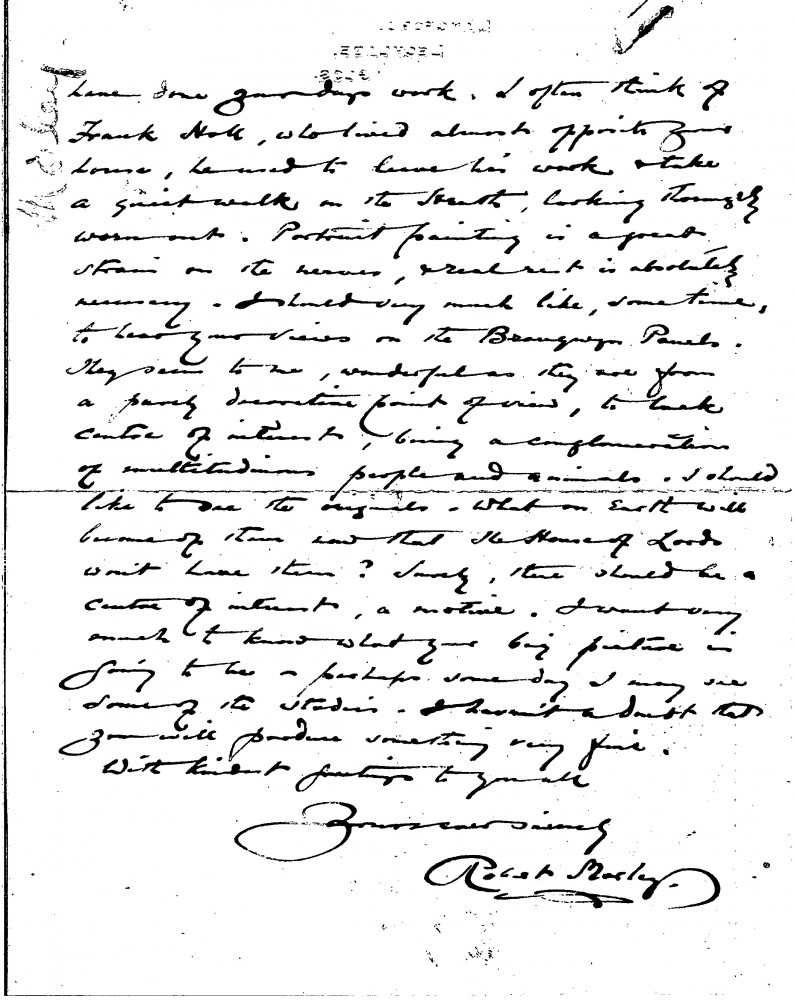 have done your days work. I often think of
Frank Holl, who lived almost opposite your
house, he used to leave his work & take
a quiet walk on the Heath, looking thoroughly
worn out. Portrait painting is a great
strain on the nerves, & real rest is absolutely
necessary. I should very much like, some time,
to hear your views on the Brangwyn Panels.
They seem to me, wonderful as they are from
a purely decorative point of view, to lack
centre of interest, being a conglomeration
of multitudinous people and animals. I should
like to see the originals. What on Earth will
become of them now that the House of Lords
won't have them? Surely, there should be a
centre of interest, a motive. I want very
much to know what your big picture is
going to be & perhaps some day I may see
some of the studies. I haven't a doubt that
you will produce something very fine.
With kindest greetings to you all
Yours ever sincerely
Robert Morley.